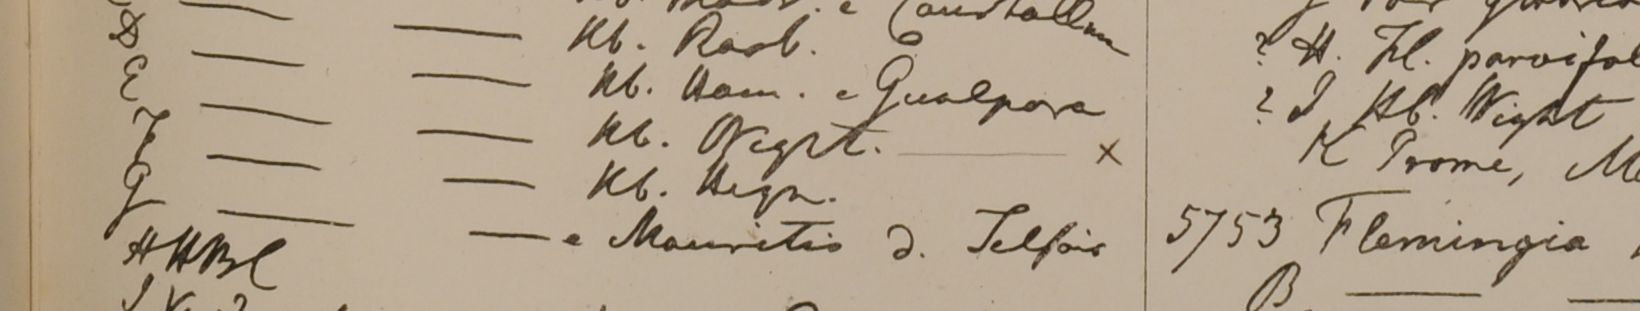 D — — Hb. Roxb.
E — — Hb. Ham. e Gualpara
F — — Hb. Wight. x
G — — Hb. Heyn.
HHBC — e Mauritio d. Telfair
? H. Fl. parvifol
? I Hb. Wight
K Prome,
5753 Flemingia
B — —